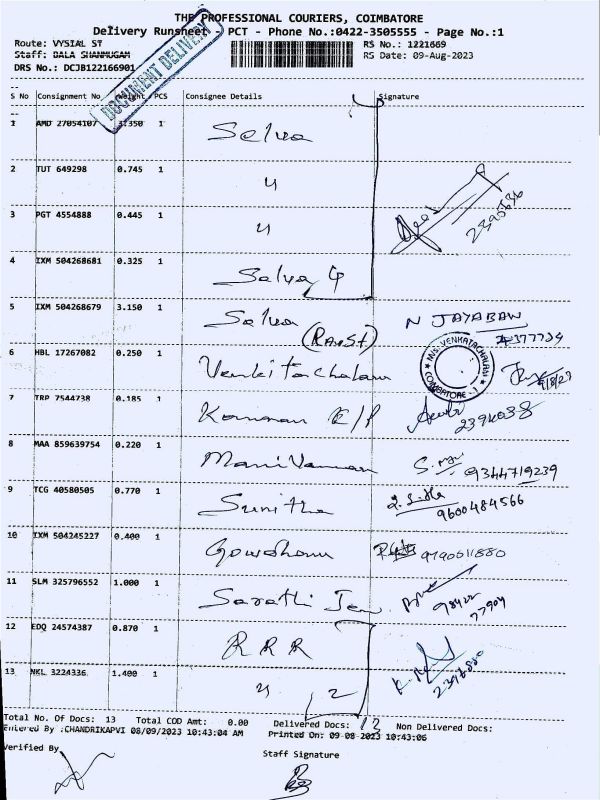 THE PROFESSIONAL COURIERS, COIMBATORE
Delivery Runsheet - PCT - Phone No.:0422-3505555 - Page No.:1
Route: VYSIAL ST RS No.: 1221669
Staff: BALA SHANMUGAM RS Date: 09-Aug-2023
DRS No.: DCJB122166901
DOCUMENT DELIVERY
S No Consignment No. Weight PCS Consignee Details Signature
1 AMD 27054107 3.350 1 Selva
2 TUT 649298 0.745 1 "
3 PGT 4554888 0.445 1 "
2395636
4 IXM 504268681 0.325 1 Selva 4
5 IXM 504268679 3.150 1 Selva N JAYABAN
(R.av.St) 2377734
6 HBL 17267082 0.250 1 Venkitachalam M/S. VENKATACHALAM COIMBATORE - 1 9/8/23
7 TRP 7544738 0.185 1 Kannan E/P
8 MAA 859639754 0.220 1 Mani Vannan 9344719239
9 TCG 40580505 0.770 1 Sunitha 9600484566
10 IXM 504245227 0.400 1 Gowsham 9790011880
11 SLM 325796552 1.000 1 Sarathi Jew 98422
77904
12 EDQ 24574387 0.870 1 RRR
13 NKL 3224336 1.400 1 " 2
Total No. Of Docs: 13 Total COD Amt: 0.00 Delivered Docs: 12 Non Delivered Docs:
Entered By :CHANDRIKAPVI 08/09/2023 10:43:04 AM Printed On: 09-08-2023 10:43:06
Verified By Staff Signature